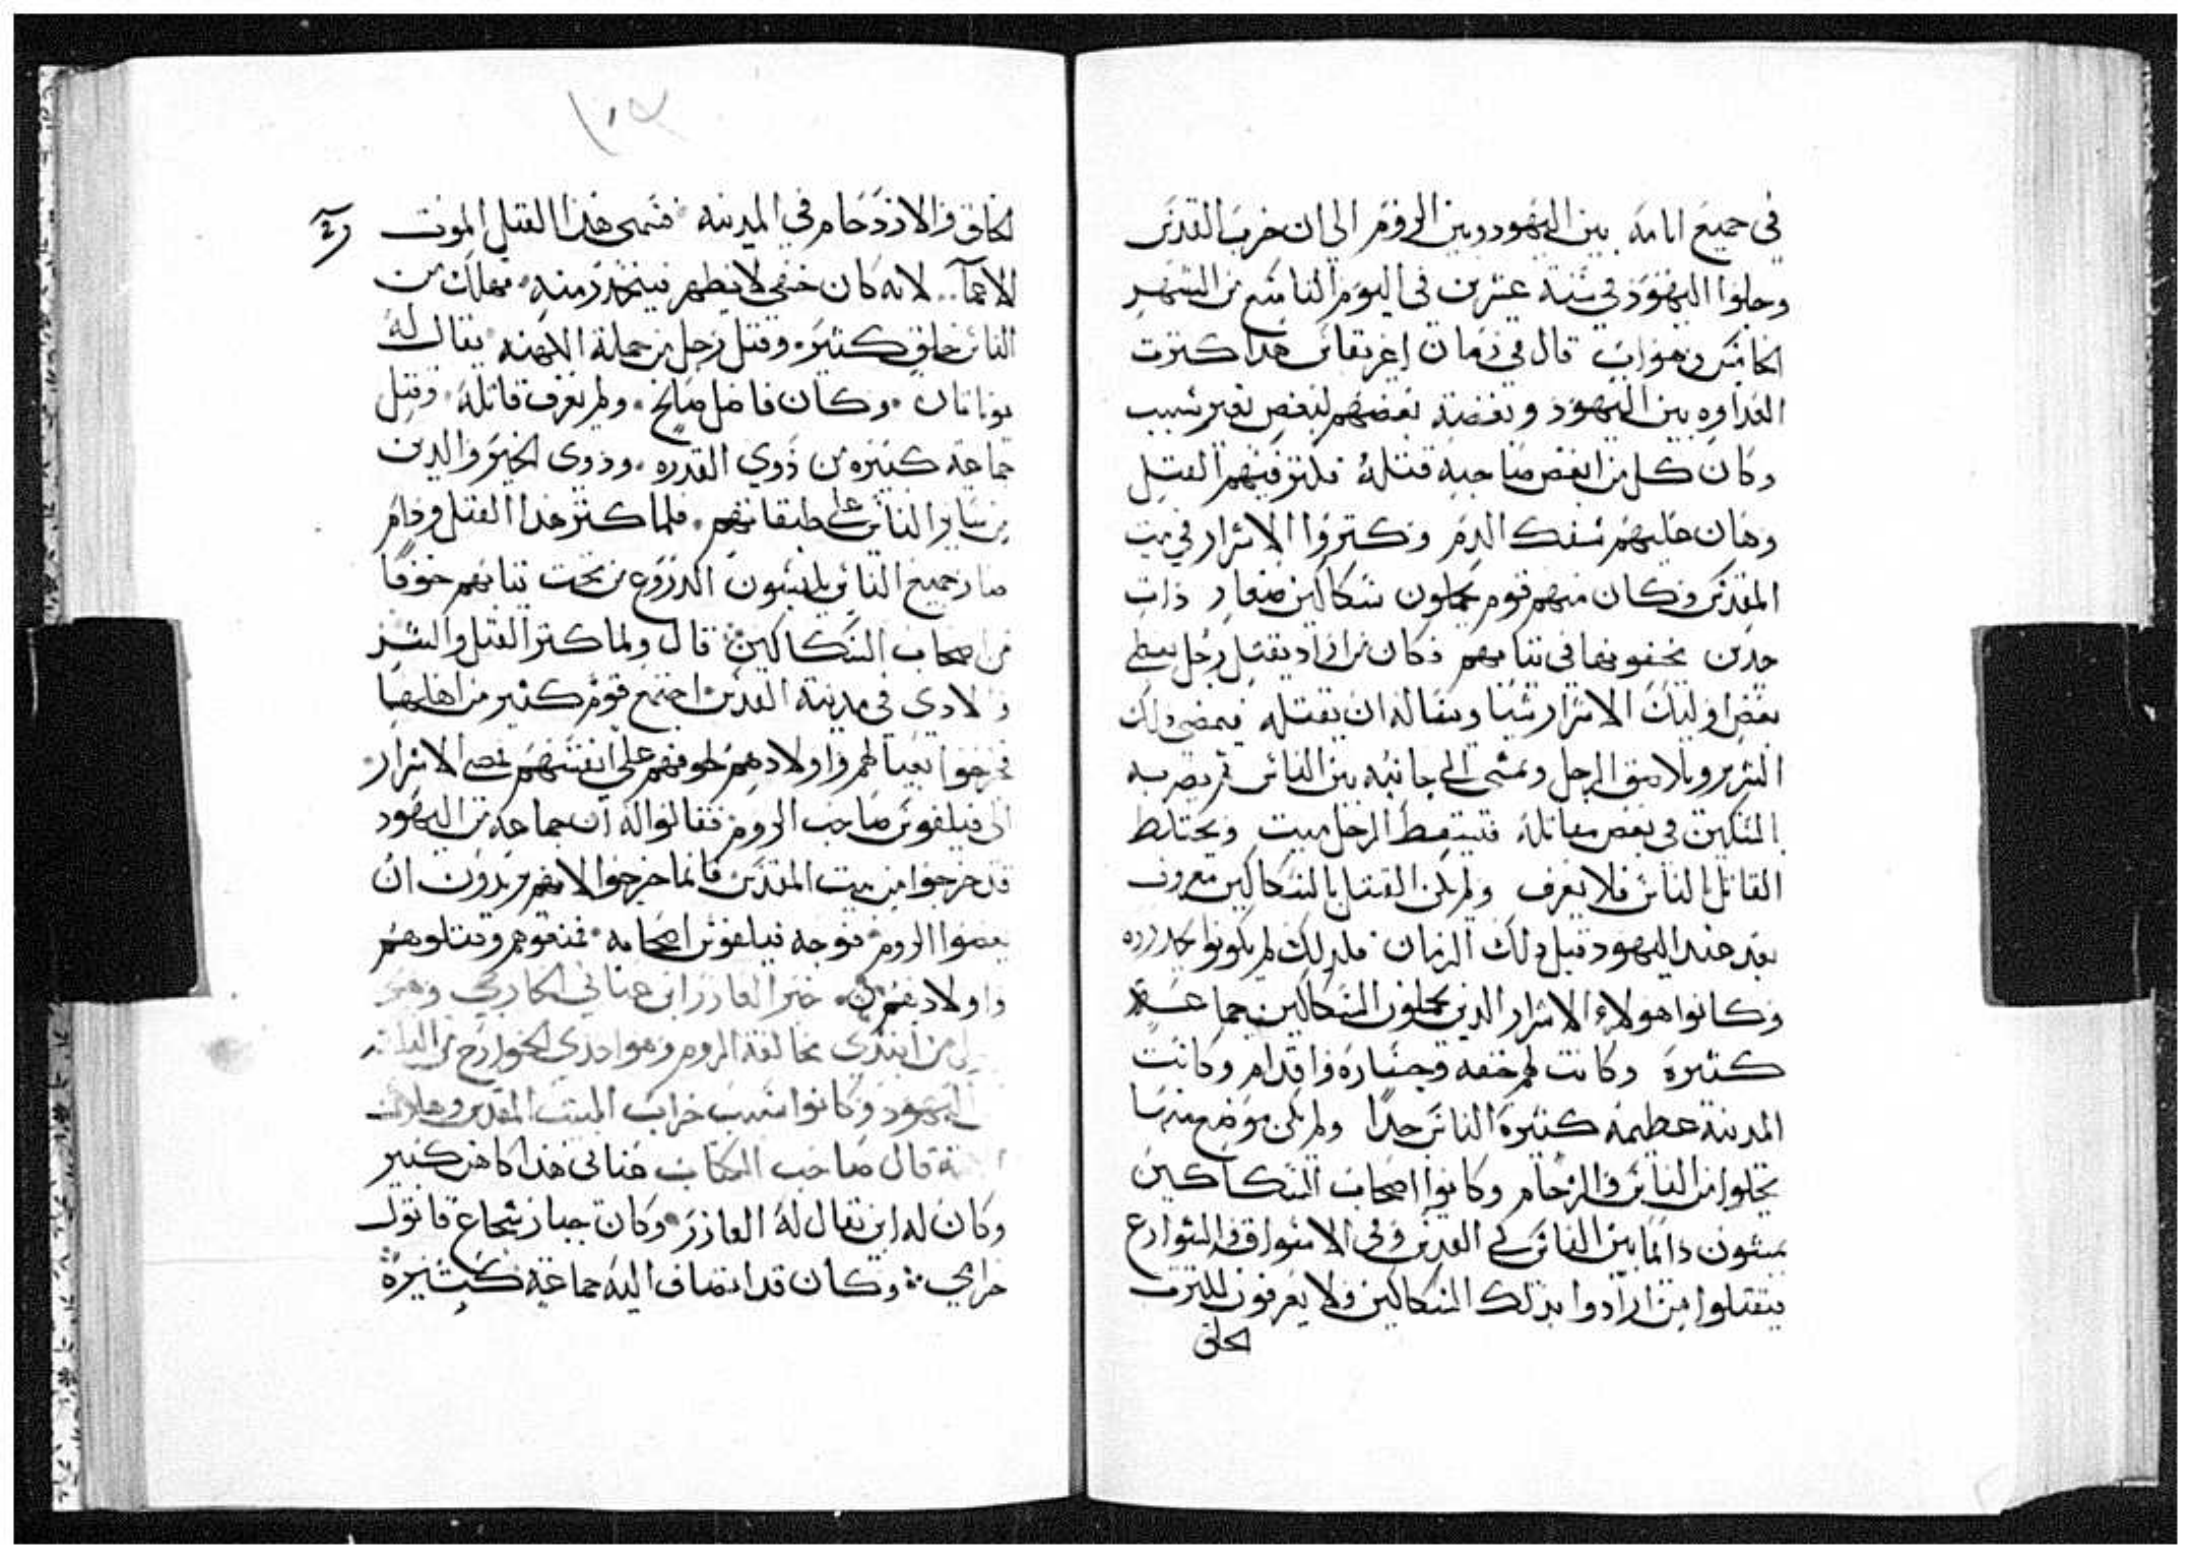 في جميع ايامه بين اليهود وبين الروم الي ان خرب القدس
وجلوا اليهود في سنة عشرين في اليوم التاسع من الشهر
الخامس وهو اب قال في زمان اغريفاس هدا كترت
العداوه بين اليهود وبغضة بعضهم لبعض بغير سبب
وكان كل من ابغض صاحبه قتله فكتر فيهم القتل
وهان عليهم سفك الدم وكتروا الاشرار في بيت
المقدس وكان منهم قوم يحملون سكاكين صغار ذات
حدين يخفونها في تيابهم فكان من اراد يقتل رجل يعطي
بعض اوليك الاشرار شيا ويساله ان يقتله فيمضي دلك
الشرير ويلاصق الرجل ويمشي الي جانبه بين الناس تم يضربه
بالسكين في بعض مقاتله فيسقط الرجل ميت ويختلط
القاتل بالناس فلا يعرف ولم يكن القتل بالسكاكين معروف
بعد عند اليهود قبل دلك الزمان فلدلك لم يكونوا يحدروه
وكانوا هولاء الاشرار الدين يحملون السكاكين جماعة
كتيرة وكانت لهم خفه وجساره واقدام وكانت
المدينة عظيمه كتيرة الناس جدا ولم يكن موضع منها
يخلوا من الناس والزحام وكانوا اصحاب السكاكين
يمشون دايما بين الناس في القدس وفي الاسواق والشوارع
فيقتلوا من ارادوا بدلك السكاكين ولا يعرفون لكترت
الخلق
١٠٢
الخلق والازدحام في المدينه فسمي هذا القتل الموت
الاعما لانه كان خفي لا يظهر فيتحدر منه فهلك من
الناس خلق كتير وقتل رجل من جملة الايمه يقال له
يوناتان وكان فاضل صالح ولم يعرف قاتله وقتل
جماعة كتيره من ذوي القدره وذوي الخير والدين
من ساير الناس علي طبقاتهم فلما كتر هدا القتل ودام
صار جميع الناس يلبسون الدروع من تحت تيابهم خوفا
من اصحاب السكاكين قال ولما كتر القتل والشر
والادي في مدينة القدس اجتمع قوم كتير من اهلها
فخرجوا بعيالهم واولادهم لخوفهم علي انفسهم من الاشرار
الي فيلقوس صاحب الروم فقالوا له ان جماعه من اليهود
قد خرجوا من بيت المقدس فانما خرجوا لانهم يريدون ان
يعصوا الروم فوجه فيلقوس اصحابه فمنعوهم وقتلوهم
واولادهم خبر العازر ابن عناني الخارجي وهو
من ابتدي بمخالفة الروم وهو احدي الخوارج من
اليهود وكانوا سبب خراب البيت المقدس وهلاك
قال صاحب الكتاب عناني هذا كاهن كبير
وكان له ابن يقال له العازر وكان جبار شجاع قاتول
حرامي وكان قد انضاف اليه جماعة كثيرة